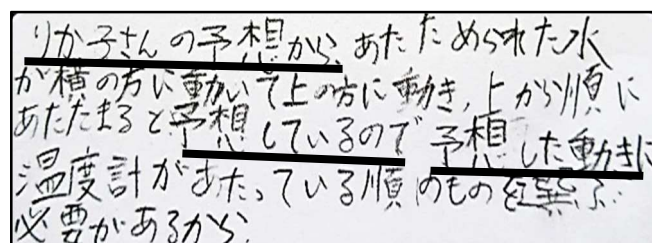 りか子さんの予想から、あたためられた水
が横の方に動いて上の方に動き、上から順に
あたたまると予想しているので予想した動きに
温度計があたっている順のものを選ぶ
必要があるから、